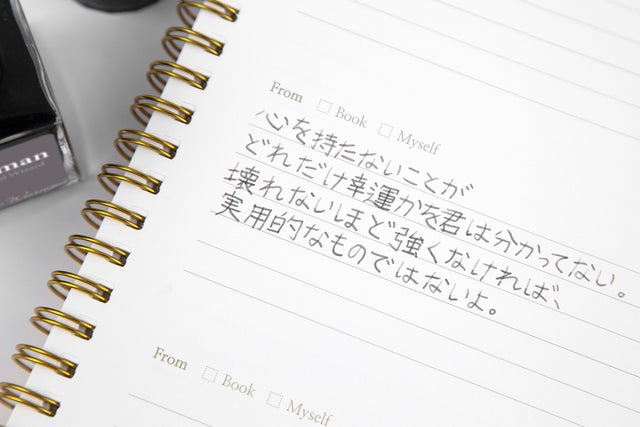 From □ Book □ Myself
心を持たないことが
どれだけ幸運かを君は分かってない。
壊れないほど強くなければ、
実用的なものではないよ。
From □ Book □ Myself
man